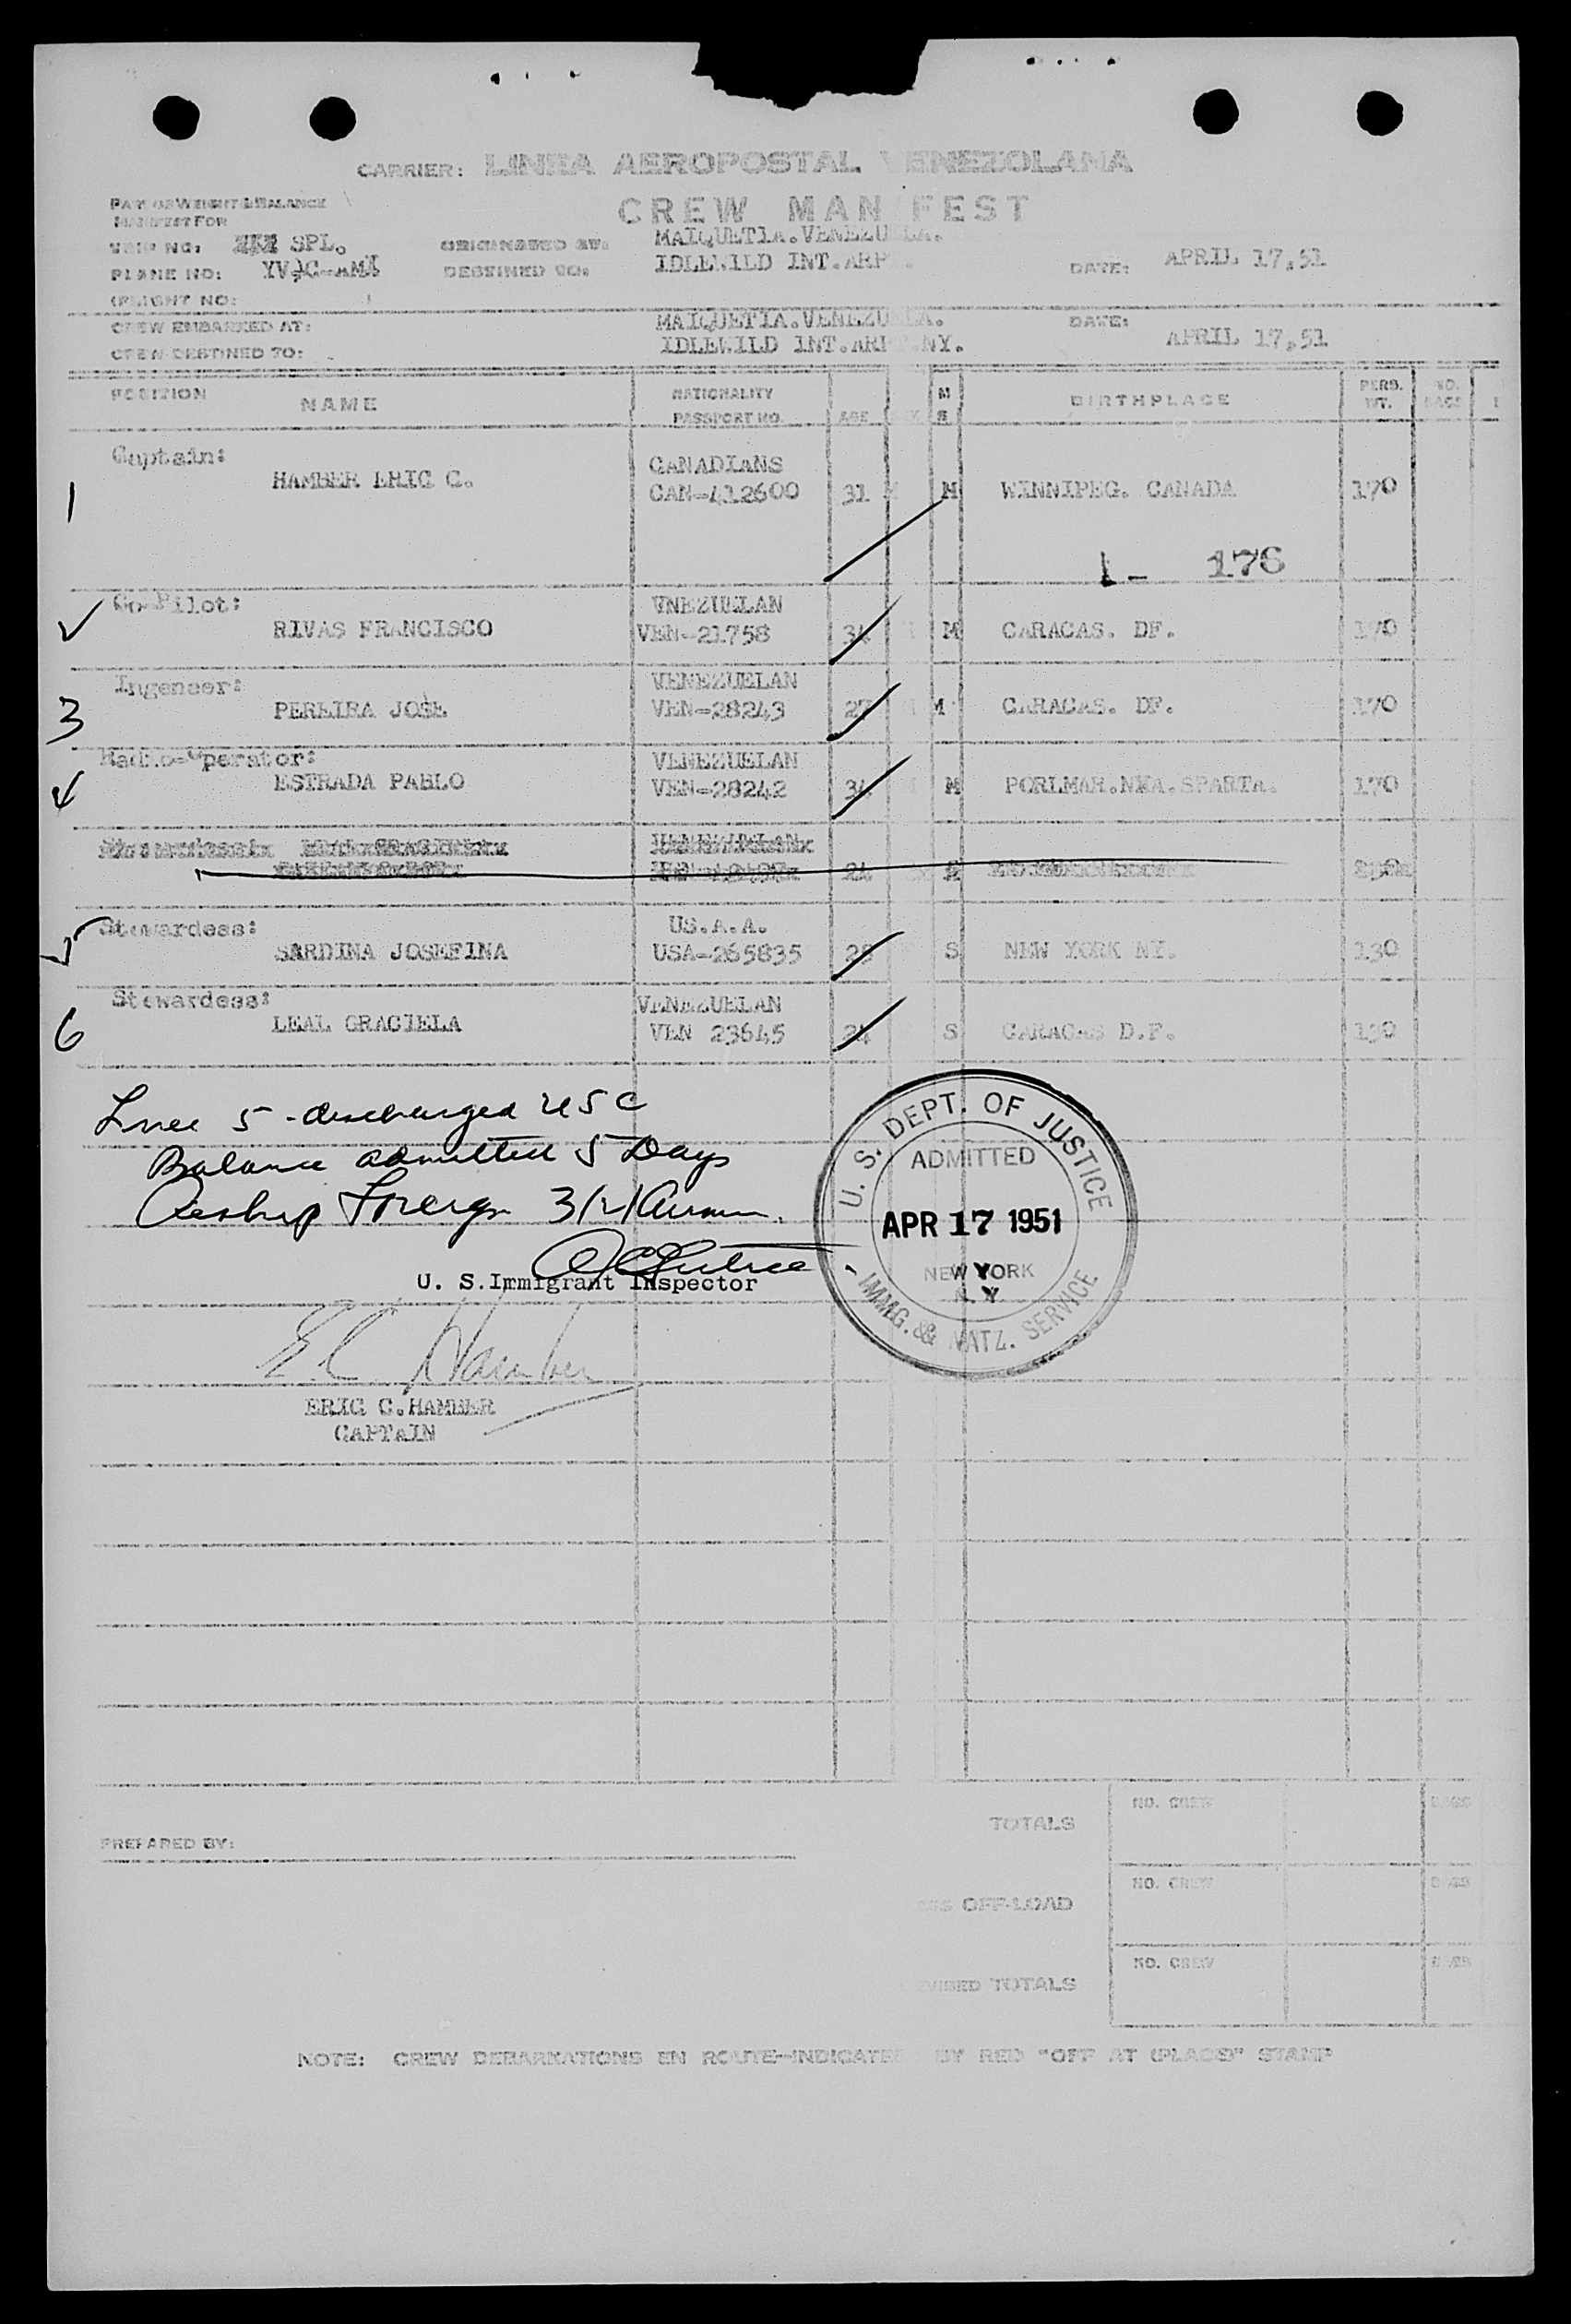 CARRIER: LINEA AEROPOSTAL VENEZOLANA
PART OF WEIGHT & BALANCE
MANIFEST FOR
CREW MAN FEST
SPL.
ORIGINATED AT: MAIQUETIA.VENEZU LA.
PLANE NO: YV-C-AMX
DESTINED TO: IDLEWILD INT.ARP
DATE: APRIL 17,51
(FLIGHT NO:
CREW EMBARKED AT: MAIQUETIA.VENEZU LA.
DATE: APRIL 17,51
CREW DESTINED TO: IDLEWILD INT.ARP NY.
POSITION NAME NATIONALITY PASSPORT NO. AGE M S BIRTHPLACE PERS. WT. NO. BAGS
Captain: CANADIANS
1 HAMBER ERIC C. CAN-412600 31 M M WINNIPEG. CANADA 170
1- 176
Co-Pilot: VNEZUELAN
RIVAS FRANCISCO VEN-21758 34 M CARACAS. DF. 170
Ingeneer: VENEZUELAN
3 PEREIRA JOSE VEN-28243 27 M CARACAS. DF. 170
Radio-Operator: VENEZUELAN
4 ESTRADA PABLO VEN-28242 34 M PORLMAR.NVA.SPARTA. 170
24
Stewardess: US.A.A.
5 SARDINA JOSEFINA USA-265835 28 S NEW YORK NY. 130
Stewardess: VENEZUELAN
6 LEAL GRACIELA VEN 23645 24 S CARACAS D.F. 130
Line 5 - discharged USC
Balance admitted 5 Days
Airship Foreign
U. S. Immigrant Inspector
U. S. DEPT. OF JUSTICE
ADMITTED
APR 17 1951
NEW YORK
N. Y
IMMIG. & NATZ. SERVICE
E.C. Hamber
ERIC C.HAMBER
CAPTAIN
TOTALS NO. CREW BAGS
PREPARED BY:
OFF-LOAD NO. CREW BAGS
VISED TOTALS NO. CREW BAGS
NOTE: CREW DEBARKATIONS EN ROUTE--INDICATE BY RED "OFF AT (PLACE)" STAMP